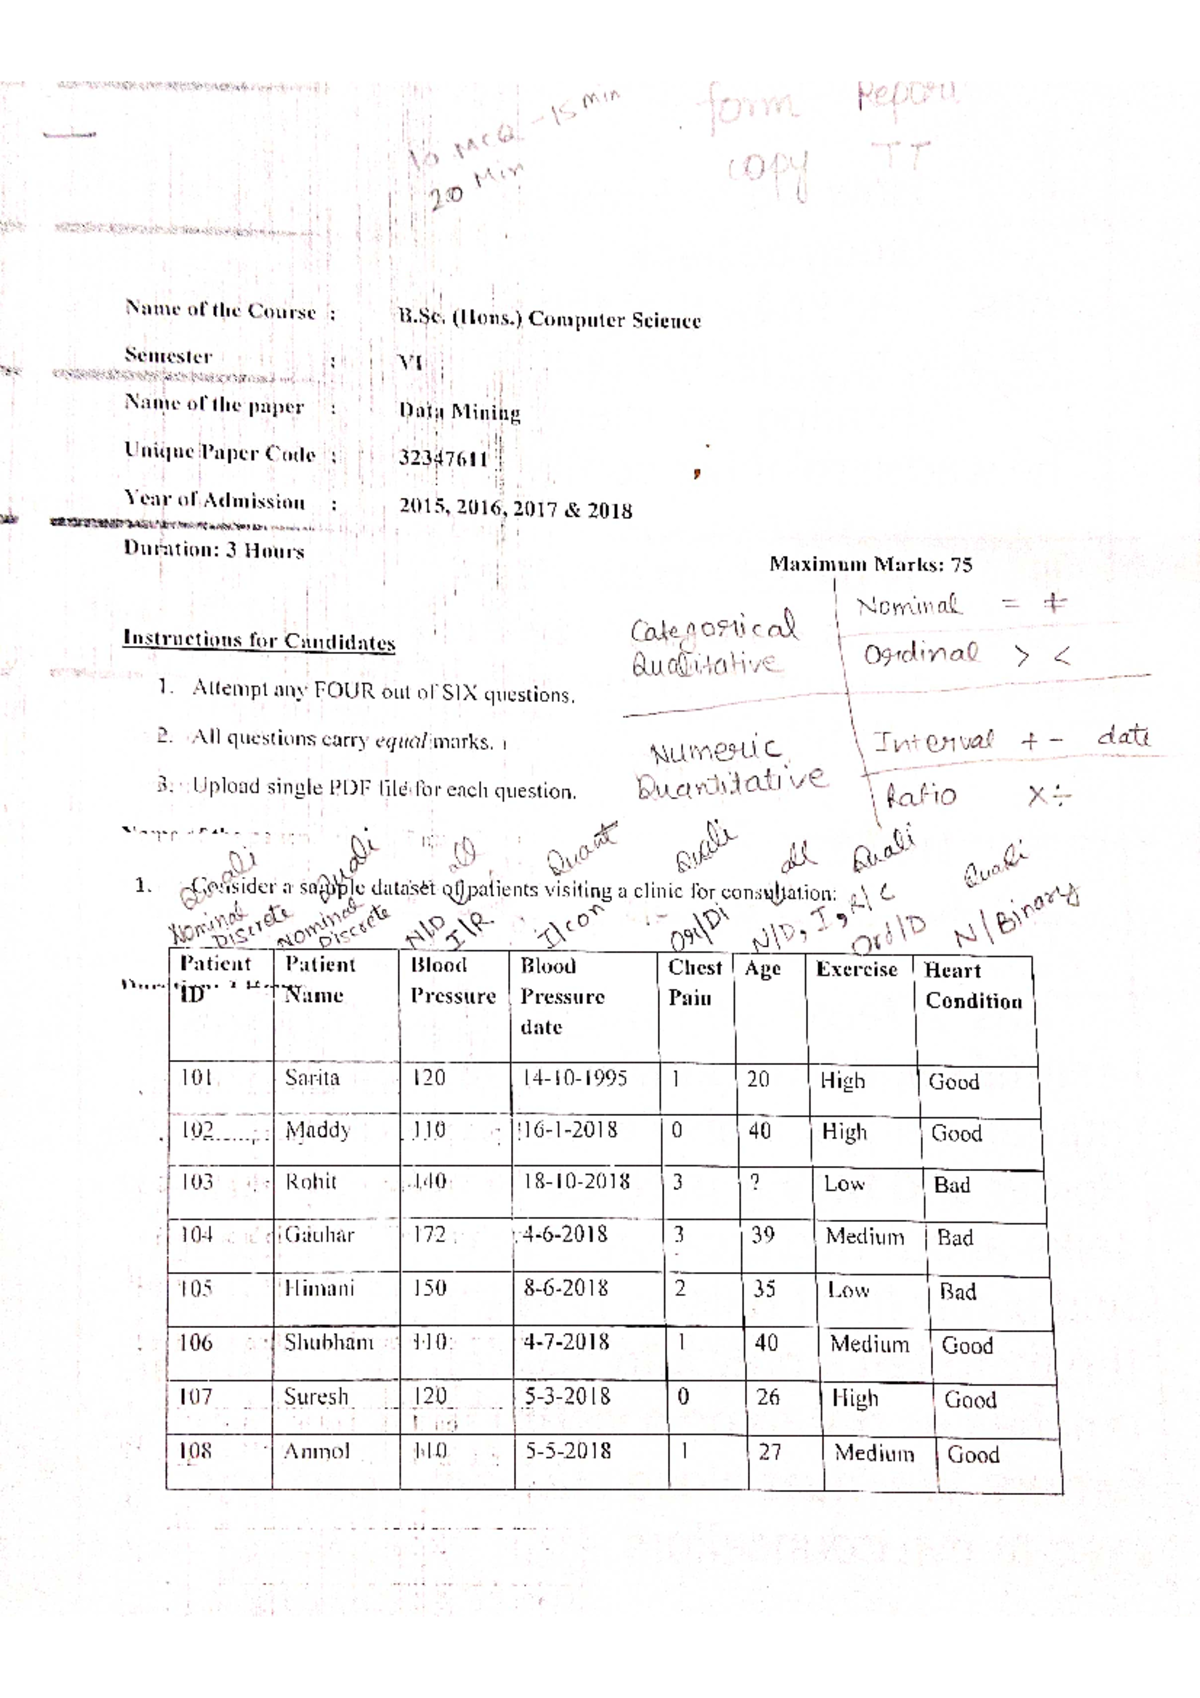 10 MCQ - 15 Min
20 Min
form Report
copy TT
Name of the Course : B.Sc. (Hons.) Computer Science
Semester : VI
Name of the paper : Data Mining
Unique Paper Code : 32347611
Year of Admission : 2015, 2016, 2017 & 2018
Duration: 3 Hours
Maximum Marks: 75
Categorical
Qualitative
Nominal = ≠
Ordinal > <
Numeric
Quantitative
Interval + - date
Ratio × ÷
Instructions for Candidates
1. Attempt any FOUR out of SIX questions.
2. All questions carry equal marks.
3. Upload single PDF file for each question.
Quali Quali all Quant Quali all Quali Quali
1. Consider a sample dataset of patients visiting a clinic for consultation:
Nominal Discrete
Nominal Discrete
N/D I/R
I/con
Ord/Di
N/D, I, R/C
Ord/D
N/Binary
Patient ID Patient Name Blood Pressure Blood Pressure date Chest Pain Age Exercise Heart Condition
101 Sarita 120 14-10-1995 1 20 High Good
102 Maddy 110 16-1-2018 0 40 High Good
103 Rohit 140 18-10-2018 3 ? Low Bad
104 Gauhar 172 4-6-2018 3 39 Medium Bad
105 Himani 150 8-6-2018 2 35 Low Bad
106 Shubham 110 4-7-2018 1 40 Medium Good
107 Suresh 120 5-3-2018 0 26 High Good
108 Anmol 110 5-5-2018 1 27 Medium Good